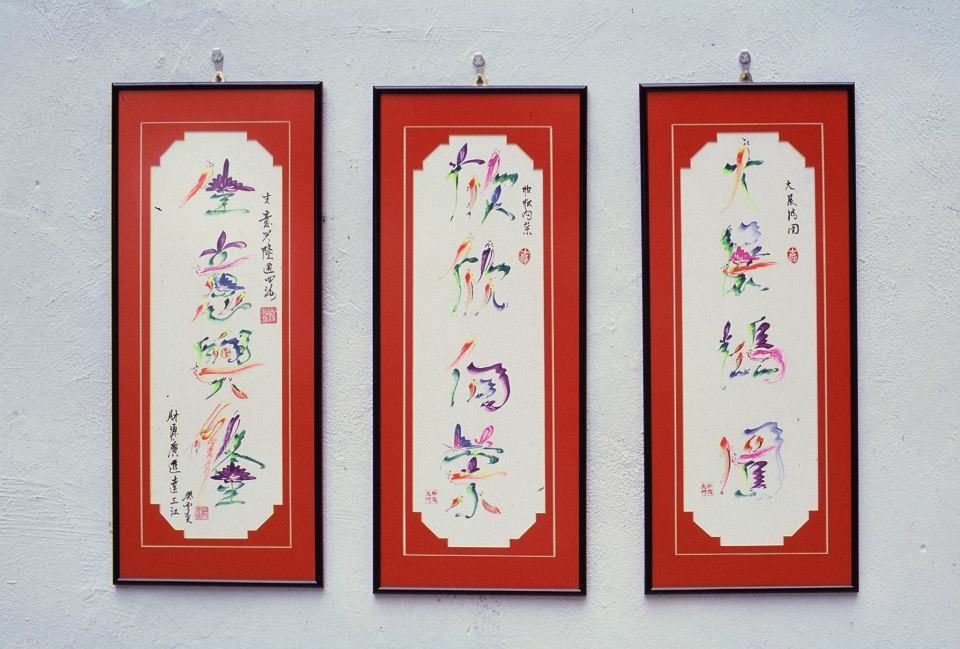 生意興隆
生意兴隆通四海
財源廣進達三江
欣欣向榮
欣欣向荣
大展鴻圖
大展鸿图